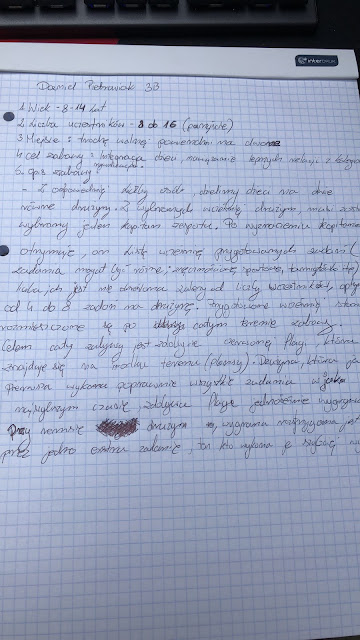 interDRUK
Daniel Pietrusiak 3B
1. Wiek - 8-14 lat
2. Liczba uczestników - 8 do 16 (parzyście)
3. Miejsce: trochę wolnej powierzchni na dworze
4. Cel zabawy: Integracja dzieci, nawiązanie lepszych relacji z kolegami
rówieśnikami
5. Opis zabawy:
- Z odpowiedniej liczby osób, dzielimy dzieci na dwie
równe drużyny. Z wybranych wcześniej drużyn, musi zostać
wybrany jeden kapitan zespołu. Po wyznaczeniu kapitana
otrzymuje, on listę wcześniej przygotowanych zadań (
zadania mogą być różne, zręcznościowe, sportowe,
liczba ich jest nie określona zależy od liczby uczestników,
od 4 do 8 zadań na drużynę. wcześniej
rozmieszczone są po całym terenie zabawy.
Celem całej zabawy jest zdobycie czerwonej flagi, która
znajduje się na środku terenu (planszy). Drużyna, która
pierwsza wykona poprawnie wszystkie zadania w jak
najszybszym czasie zdobywa flagę jednocześnie wygrywając
Przy remisie drużyn wygrana rozstrzygana jest
przez jedno extra zadanie, ten kto wykona je szybciej